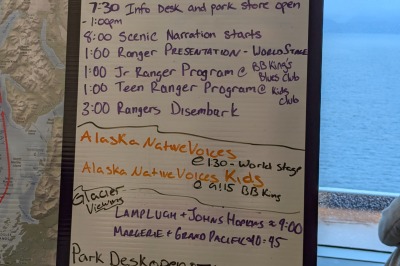 7:30 Info Desk and park store open
- 1:00pm
8:00 Scenic Narration starts
1:00 Ranger PRESENTATION - WORLD STAGE
1:00 Jr Ranger Program @ BB King's
Blues Club
1:00 Teen Ranger Program @ Kids
Club
3:00 Rangers Disembark
Alaska Native Voices
@ 1:30 - World Stage
Alaska Native Voices Kids
@ 9:15 BB King
Glacier
Viewing
LAMPLUGH + JOHNS HOPKINS ≈ 9:00
MARGERIE + GRAND PACIFIC ≈ 10:45
Park Desk open